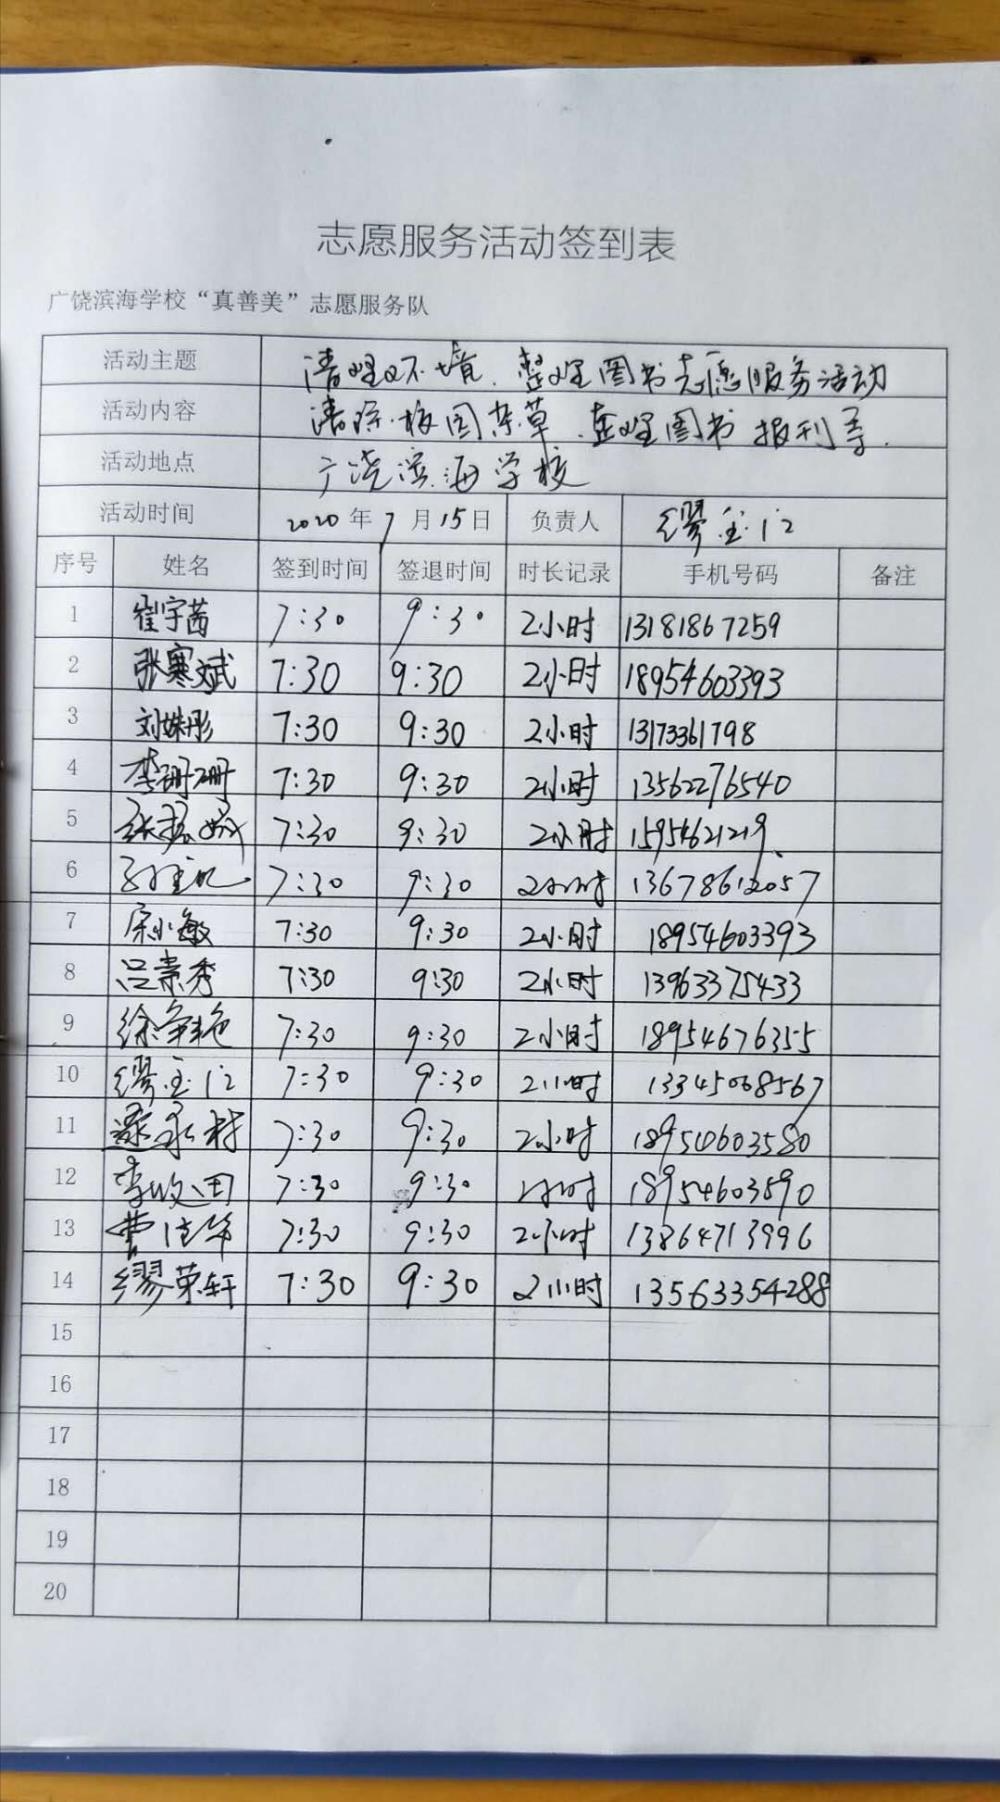 志愿服务活动签到表
广饶滨海学校“真善美”志愿服务队
活动主题 清理环境、整理图书志愿服务活动
活动内容 清除校园杂草、整理图书报刊等.
活动地点 广饶滨海学校
活动时间 2020年7月15日 负责人 缪
序号 姓名 签到时间 签退时间 时长记录 手机号码 备注
1 崔宇茜 7:30 9:30 2小时 13181867259
2 张寒斌 7:30 9:30 2小时 18954603393
3 刘姝彤 7:30 9:30 2小时 13173361798
4 李珊珊 7:30 9:30 2小时 13562276540
5 张 7:30 9:30 2小时 15954621219
6 7:30 9:30 2小时 13678612057
7 宋小敏 7:30 9:30 2小时 18954603393
8 吕素秀 7:30 9:30 2小时 13963375433
9 徐争艳 7:30 9:30 2小时 18954676355
10 缪 7:30 9:30 2小时 13345068567
11 7:30 9:30 2小时 18954603580
12 李 7:30 9:30 2小时 18954603590
13 曹 7:30 9:30 2小时 13864713996
14 缪荣轩 7:30 9:30 2小时 13563354288
15
16
17
18
19
20